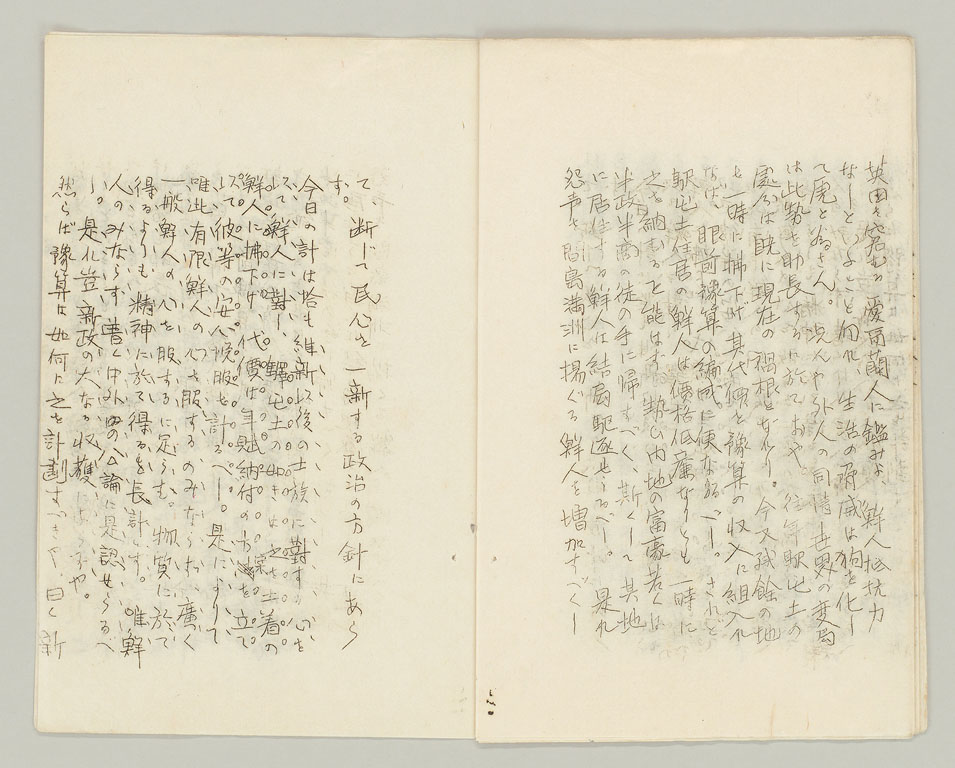 英国を窘むる愛蘭人に鑑みよ、鮮人抵抗力
なしといふこと勿れ、生活の脅威は狗を化し
て虎と為さん。况んや外人の同情世界の変局
は此勢を助長するに於ておや。往年駅屯土の
處分は既に現在の禍根となれり。今又残餘の地
を一時に拂下げ其代價を豫算の収入に組入れ
なば、眼前豫算の編成に便なるべし。されど
駅屯土住居の鮮人は價格低廉なりとも一時に
之を納むると能はず、勢ひ内地の富豪若くは
半政半商の徒の手に帰すべく、斯くして其地
に居住する鮮人は結局駆逐せらるべし。是れ
怨声を間島満洲に揚ぐる鮮人を増加すべくし
て、断じて民心を一新する政治の方針にあら
ず。
今日の計は恰も維新後の士族に對する心を
以て鮮人に對し、驛屯土の如きは之を土着の
鮮人に拂下げ、代價は年賦納付の方法を立て
以て彼等の安入悦服を計るべし。是によりて
唯此有限鮮人の心を服するのみならず、廣く
一般鮮人の心を服するに足らむ。物質に於て
得るよりも、精神に於て得るを長計とす。唯鮮
人のみならず、普く中外の公論に是認せらるべ
し。是れ豈新政の大なる収獲にあらずや。
然らば豫算は如何に之を計劃すべきや、曰く新